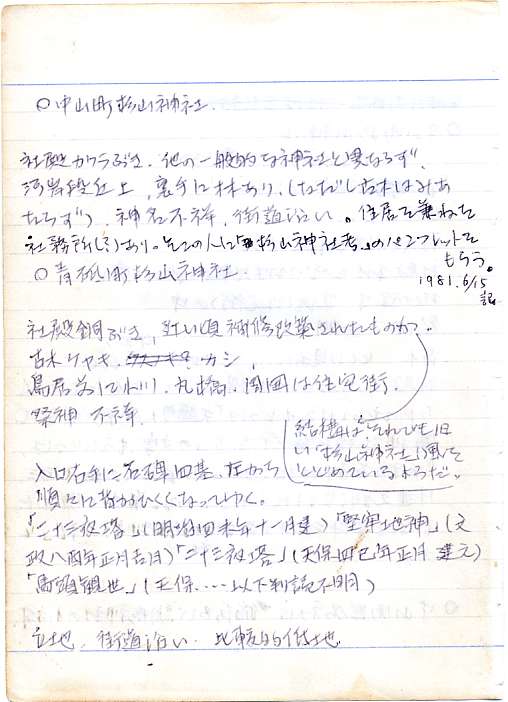 ○中山町杉山神社.
社殿カワラぶき.他の一般的な神社と異ならず.
河岸段丘上,裏手に林あり.(ただし古木はみあ
たらず).神名不祥,街道沿い。住居を兼ねた
社務所あり。そこの人に「杉山神社考」のパンフレットを
もらう。
1981.6/15
記
○青砥町杉山神社
社殿銅ぶき,近い頃補修改築されたものか?
古木ケヤキ,カシ,
鳥居前に小川.丸橋.周囲は住宅街.
祭神 不祥.
結構は,それでも旧
い「杉山神社」風を
とどめているようだ。
入口右手に石碑四基.左から
順々に背がひくくなってゆく。
「二十三夜塔」(明治四未年十一月建)「堅牢地神」(文
政八酉年正月吉日)「二十三夜塔」(天保四巳年正月建之)
「馬頭観世」(天保....以下判読不明)
立地,街道沿い.比較的低地.